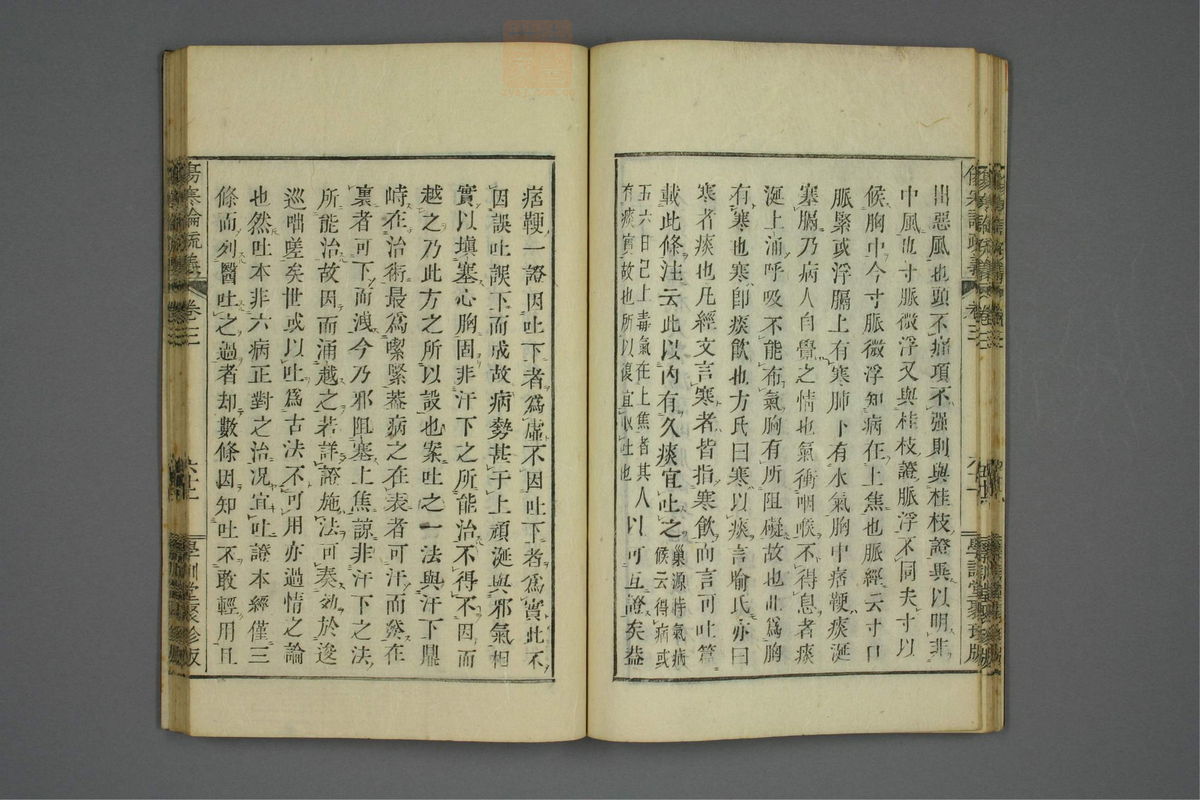 出惡風也頭不痛項不强則與桂枝證異以明非
中風也寸脈微浮又與桂枝證脈浮不同夫寸以
候胸中今寸脈微浮知病在上焦也脈經云寸口
脈緊或浮膈上有寒肺下有水氣胸中痞鞕痰涎
塞膈乃病人自覺之情也氣衝咽喉不得息者痰
涎上涌呼吸不能布氣胸有所阻礙故也此爲胸
有寒也寒卽痰飮也方氏曰寒以痰言喻氏亦曰
寒者痰也凡經文言寒者皆指寒飮而言可吐篇
載此條注云此以內有久痰宜吐之巢源時氣病候云得病或
五六日已上毒氣在上焦者其人有痰實故也所以復宜取吐也以可互證矣蓋
痞鞕一證因吐下者爲虛不因吐下者爲實此不
因誤吐誤下而成故病勢甚于上頑涎與邪氣相
實以塡塞心胸固非汗下之所能治不得不因而
越之乃此方之所以設也案吐之一法與汗下鼎
峙在治術最爲喫緊葢病之在表者可汗而發在
裏者可下而洩今乃邪阻塞上焦諒非汗下之法
所能治故因而涌越之若詳證施法可奏効於逡
巡咄嗟矣世或以吐爲古法不可用亦過情之論
也然吐本非六病正對之治况宜吐證本經僅三
條而列醫吐之過者却數條因知吐不敢輕用且
傷寒論疏義
卷三
六十一
學訓堂聚珍版